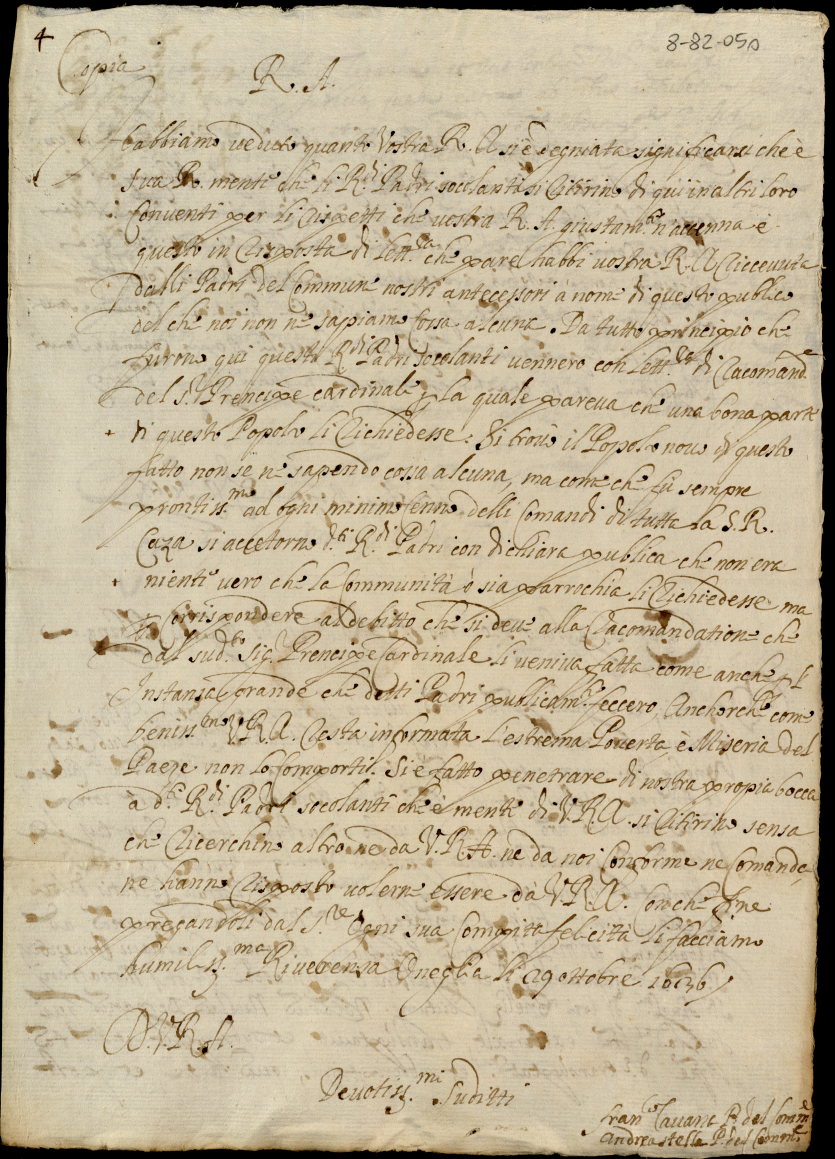 4
8-82-050
Copia
R. A.
habbiamo veduto quanto Vostra R. A. si è degniata significarci che è
sua R. mente che li R.di Padri socolanti si Ritirino di qui in altri loro
Conventi per li Rispetti che vostra R. A. giustam.te n'accenna è
questo in Risposta di lett.ra che pare habbi vostra R. A. Riccevuta
dalli Padri del Commune nostri antecessori à nome di questo publico
del che noi non ne sappiamo cossa alcuna. Da tutto principio che
furono qui questi R.di Padri socolanti vennero con lett.ra di Racomand.e
del S.r Prencipe Cardinale, la quale pareva che una bona parte
di questo Popolo li Richiedesse: Si trovò il Popolo novo di questo
fatto non se ne sapendo cossa alcuna, ma come che fù sempre
prontiss.mo ad ogni minimo cenno delli Comandi di tutta la S. R.
Caza si accetorno d.ti R.di Padri con dichiara publica che non era
niente vero che la Communità ò sia parrochia li Richiedesse ma
p corrispondere al debitto che si deve alla Racomandatione che
dal sud.o Sig.r Prencipe Cardinale li veniva fatta come anche p l
Instansa grande che detti Padri publicam.te feccero, Anchorche come
beniss.mo V. R. A. Resta informata l'estrema Poverta, è Miseria del
Paeze non lo Comporti. Si è fatto penetrare di nostra propia bocca
à d.ti R.di Padri socolanti che è mente di V. R. A. si Ritirino sensa
che Ricerchino altro ne da V. R. A. ne da noi Conforme ne Comanda,
ne hanno Risposto volerne essere dà V. R. A. Con che fine
pregandoli dal S.re Ogni sua Compita felicità li facciamo
humiliss.ma Riverensa Oneglia li 29 ottobre 1636
D. V. R. A.
Devotiss.mi Suditti
Fran.co P. del Comm.e
Andrea stella P. del Comm.e